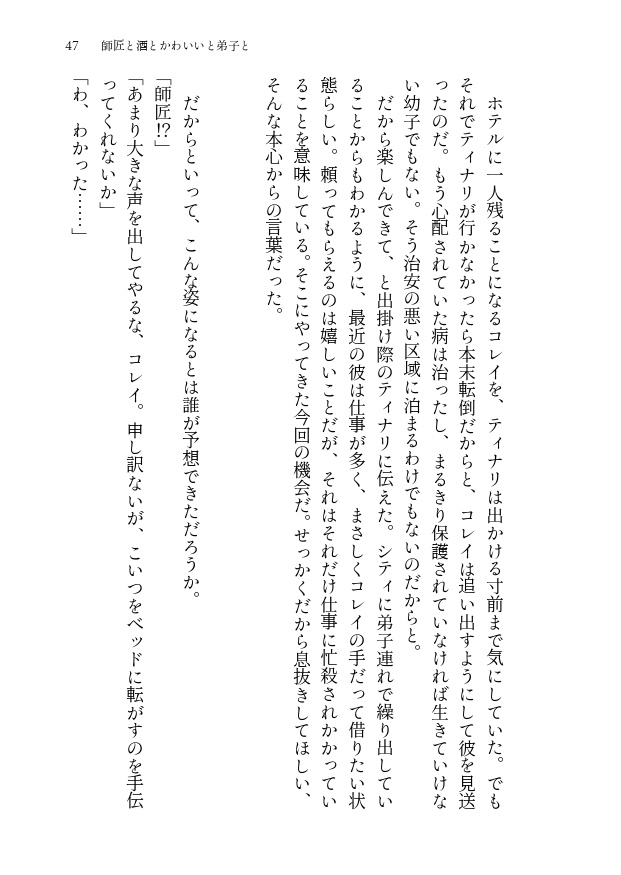 47 師匠と酒とかわいいと弟子と
　ホテルに一人残ることになるコレイを、ティナリは出かける寸前まで気にしていた。でも
それでティナリが行かなかったら本末転倒だからと、コレイは追い出すようにして彼を見送
ったのだ。もう心配されていた病は治ったし、まるきり保護されていなければ生きていけな
い幼子でもない。そう治安の悪い区域に泊まるわけでもないのだからと。
　だから楽しんできて、と出掛け際のティナリに伝えた。シティに弟子連れで繰り出してい
ることからもわかるように、最近の彼は仕事が多く、まさしくコレイの手だって借りたい状
態らしい。頼ってもらえるのは嬉しいことだが、それはそれだけ仕事に忙殺されかかってい
ることを意味している。そこにやってきた今回の機会だ。せっかくだから息抜きしてほしい、
そんな本心からの言葉だった。
　だからといって、こんな姿になるとは誰が予想できただろうか。
「師匠!?」
「あまり大きな声を出してやるな、コレイ。申し訳ないが、こいつをベッドに転がすのを手伝
ってくれないか」
「わ、わかった……」